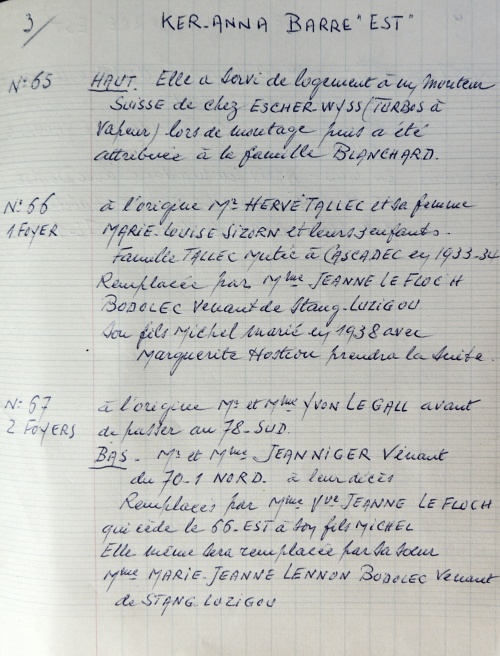 3/
KER-ANNA BARRE "EST"
N° 65 HAUT. Elle a servi de logement à un monteur
SUISSE de chez ESCHER-WYSS (TURBOS à
vapeur) lors de montage puis a été
attribuée à la famille BLANCHARD.
N° 66 à l'origine Mr HERVÉ TALLEC et sa femme
1 FOYER MARIE-LOUISE SIZORN et leurs enfants.
Famille TALLEC mutée à CASCADEC en 1933-34
Remplacée par Mme JEANNE LE FLOCH
BODOLEC venant de Stang-LUZIGOU
Son fils Michel marié en 1938 avec
Marguerite prendra la suite.
N° 67 à l'origine Mr et Mme YVON LE GALL avant
2 FOYERS de passer au 78-SUD.
BAS - Mr et Mme JEAN NIGER venant
du 70-1 NORD. à leur décès
Remplacés par Mme Vve JEANNE LE FLOCH
qui cède le 66-EST à son fils MICHEL
Elle même sera remplacée par sa sœur
Mme MARIE-JEANNE LENNON BODOLEC venant
de STANG-LUZIGOU